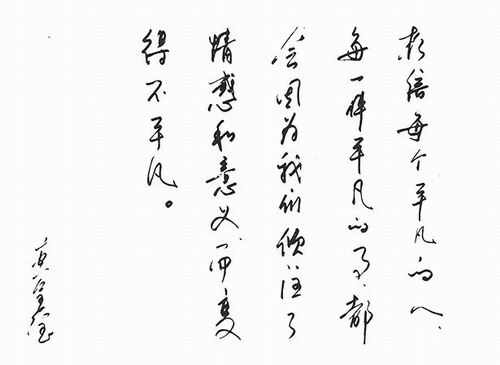 相信每个平凡的人、
每一件平凡的事、都
会因为我们倾注了
情感和意义、而变
得不平凡。